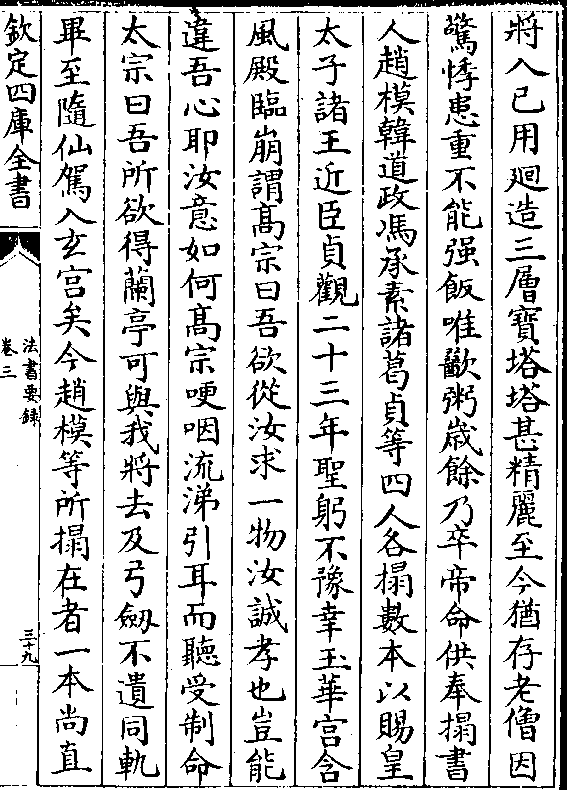 將入己用廻造三層寳塔塔甚精麗至今猶存老僧因
驚悸患重不能强飯唯歠粥歳餘乃卒帝命供奉搨書
人趙模韓道政馮承素諸葛貞等四人各搨數本以賜皇
太子諸王近臣貞觀二十三年聖躬不豫幸玉華宫含
風殿臨崩謂髙宗曰吾欲從汝求一物汝誠孝也豈能
違吾心耶汝意如何髙宗哽咽流涕引耳而聽受制命
太宗曰吾所欲得蘭亭可與我將去及弓劔不遺同軌
畢至隨仙駕入玄宫矣今趙模等所搨在者一本尚直
欽定四庫全書
法書要録
卷三
三十九